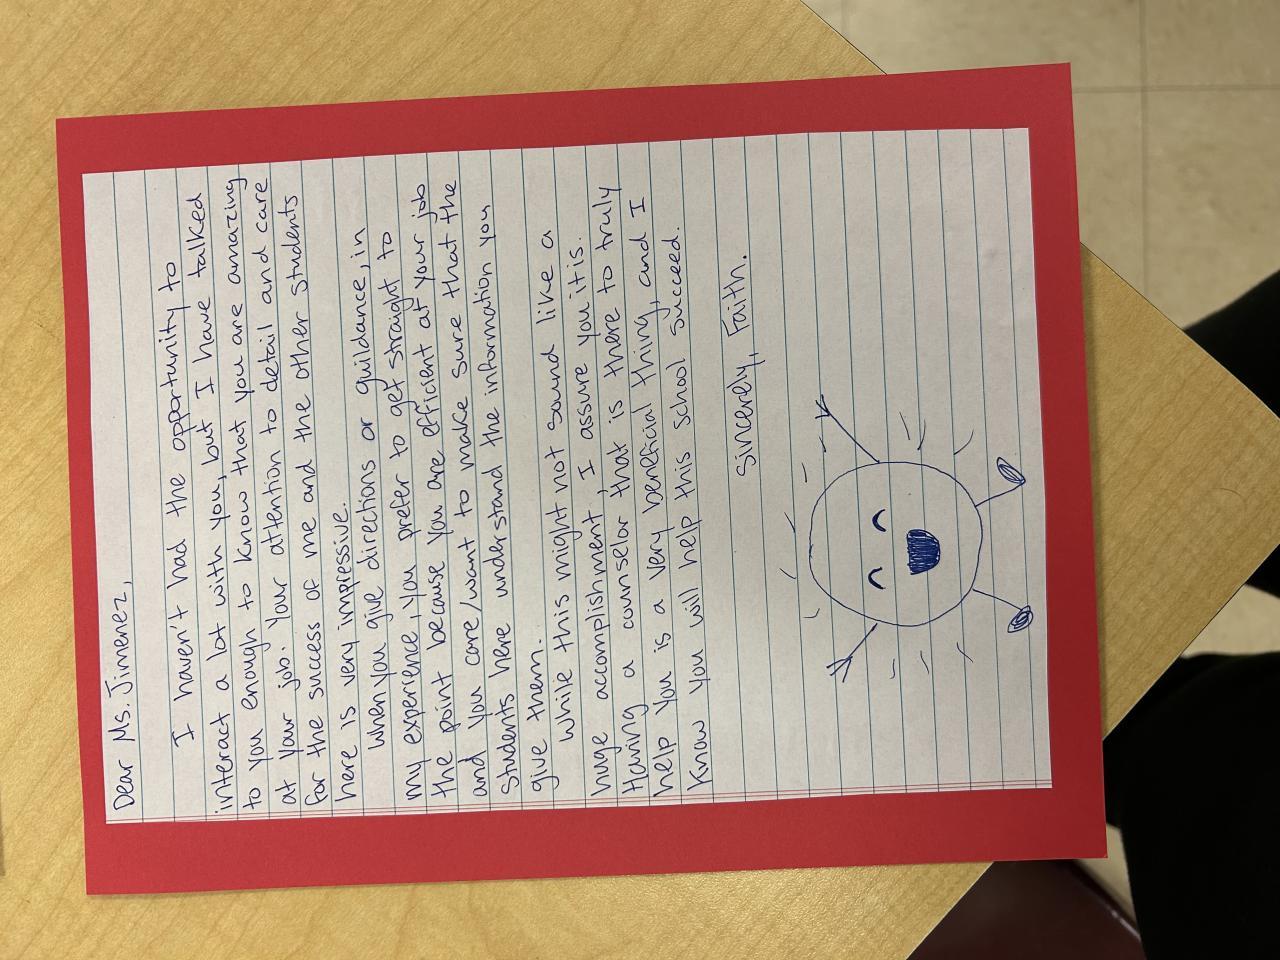 Dear Ms. Jimenez,
I haven't had the opportunity to
interact a lot with you, but I have talked
to you enough to know that you are amazing
at your job. Your attention to detail and care
for the success of me and the other students
here is very impressive.
When you give directions or guildance, in
my experience, you prefer to get straight to
the point because you are efficient at your job
and you care/want to make sure that the
students here understand the information you
give them.
While this might not sound like a
huge accomplishment, I assure you it is.
Having a counselor that is there to truly
help you is a very beneficial thing, and I
know you will help this school succeed.
Sincerely, Faith.